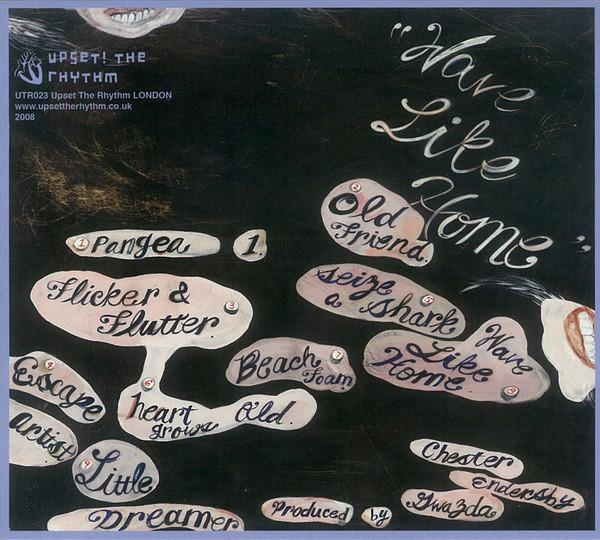 UPSET! THE
RHYTHM
UTR023 Upset The Rhythm LONDON
www.upsettherhythm.co.uk
2008
"Wave
Like
Home"
1 Pangea 1.
2 Old
Friend.
Flicker &
Flutter. 3
4 Escape
Artist
Seize 5
a Shark
6 heart
grows Old.
Beach 7
Foam
Wave
Like
Home. 8
9 Little
Dreamer
Produced by
Chester
Endersby
Gwazda